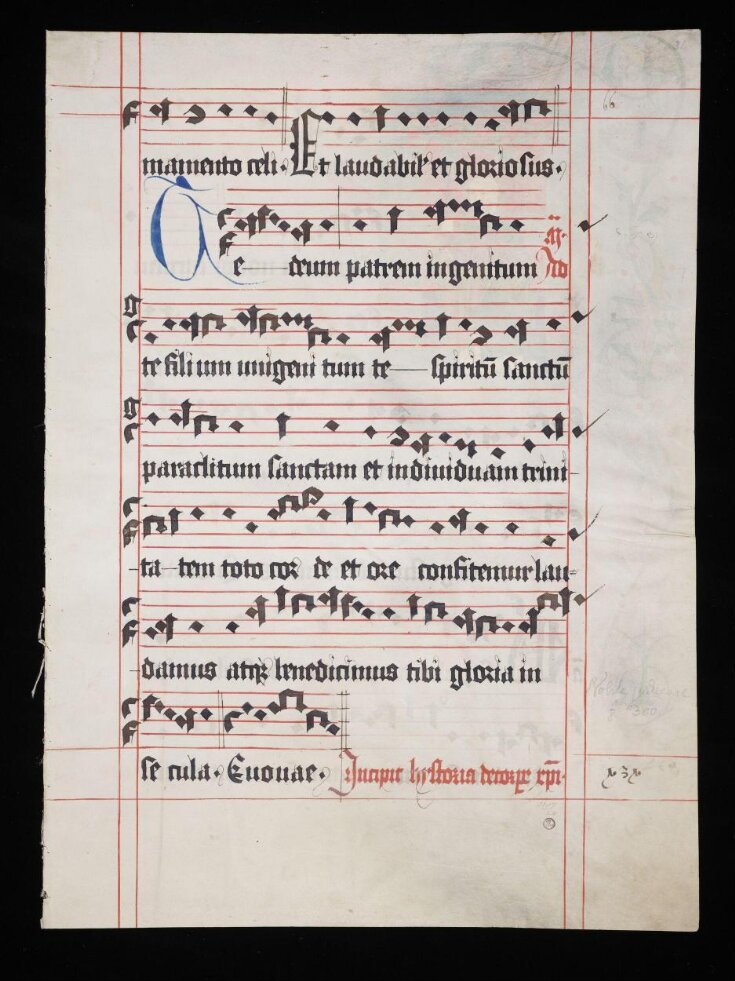 mamento celi. Et laudabil' et gloriosus.
Te deum patrem ingenitum Ad
te filium unigeni tum te spiritū sanctū
paraclitum sanctam et individuam trini-
ta-tem toto cor de et ore confitemur lau-
damus atqꝫ benedicimus tibi gloria in
se cula. Euouae. Incipit hystoria de corpe xpi.